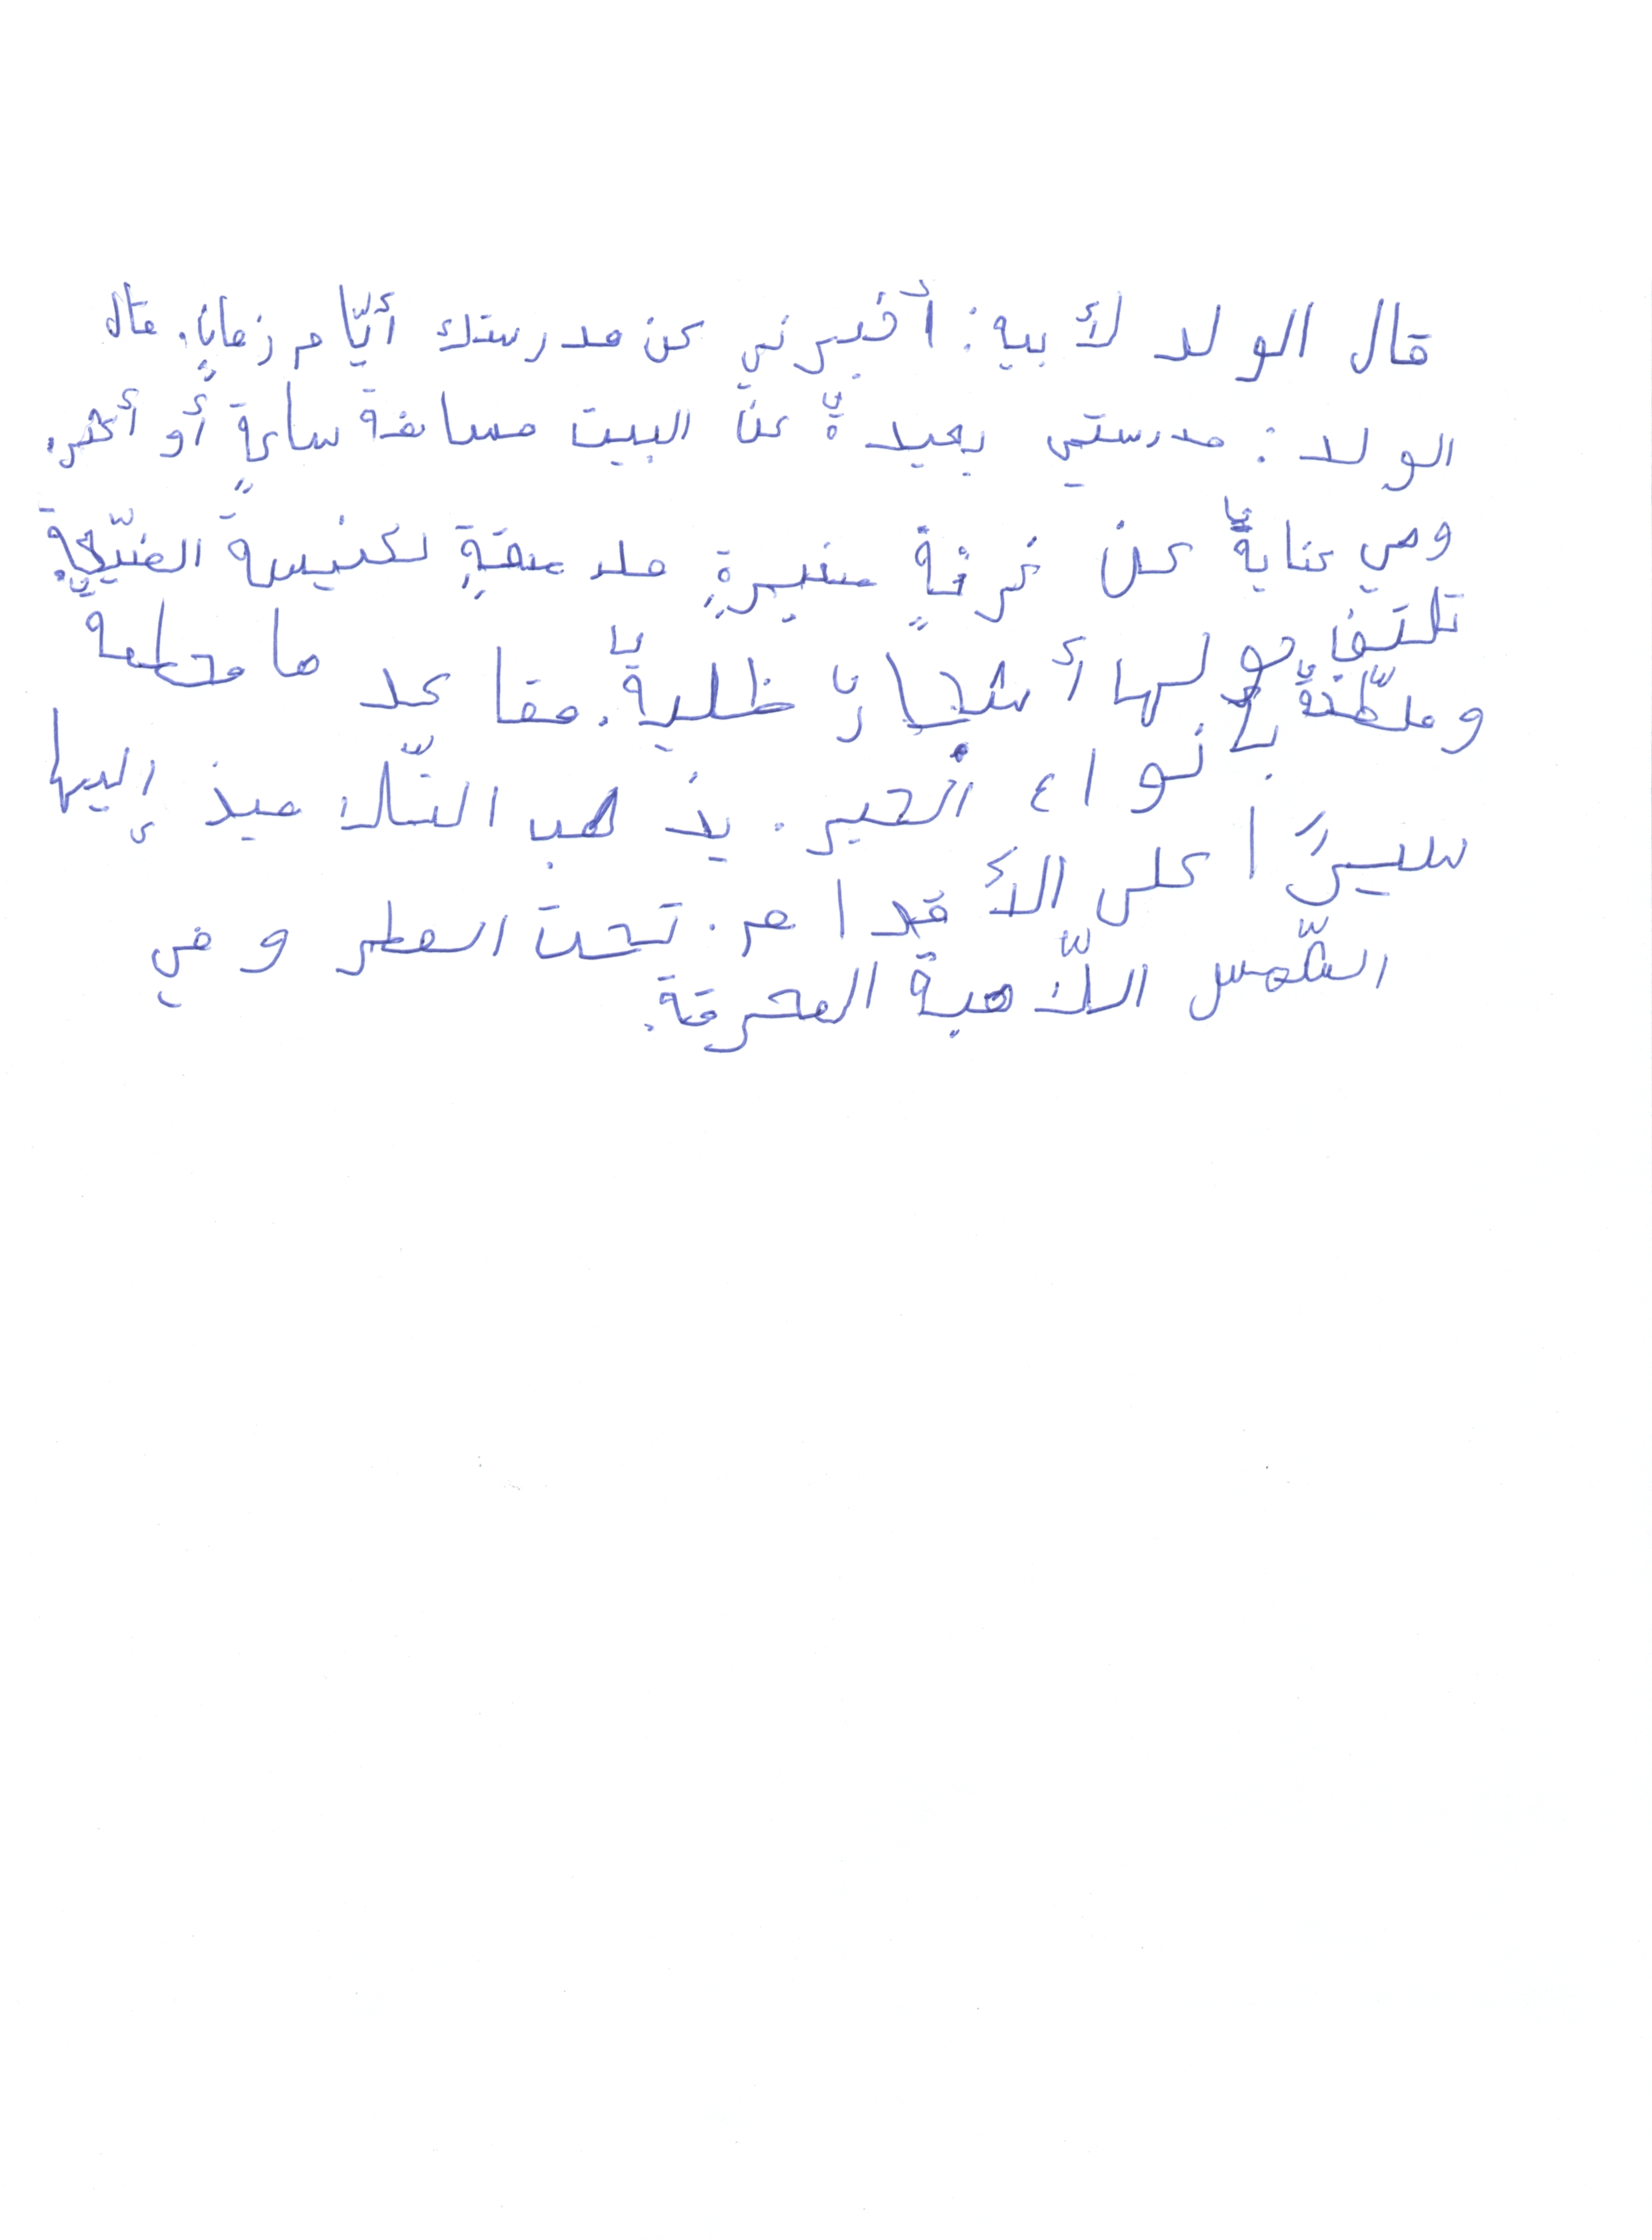 قال الولد لأبيه: أخبرني عن مدرستك أيّام زمانٍ. قال
الولد: مدرستي بعيدةٌ عن البيت مسافة ساعةٍ أو أكثر.
وهي عنايةٌ عن غرفةٍ صغيرةٍ ملاصقةٍ لكنيسة الضّيعة.
تلتفّ حولها أشجارٌ ظليلةٌ. مقاعدها محطمة
وملطّخةٌ بأنواع الحبر. يذهب التّلاميذ إليها
سيرًا على الأقدام. تحت المطر وفي
الشّمس اللّاهبة المحرقة.